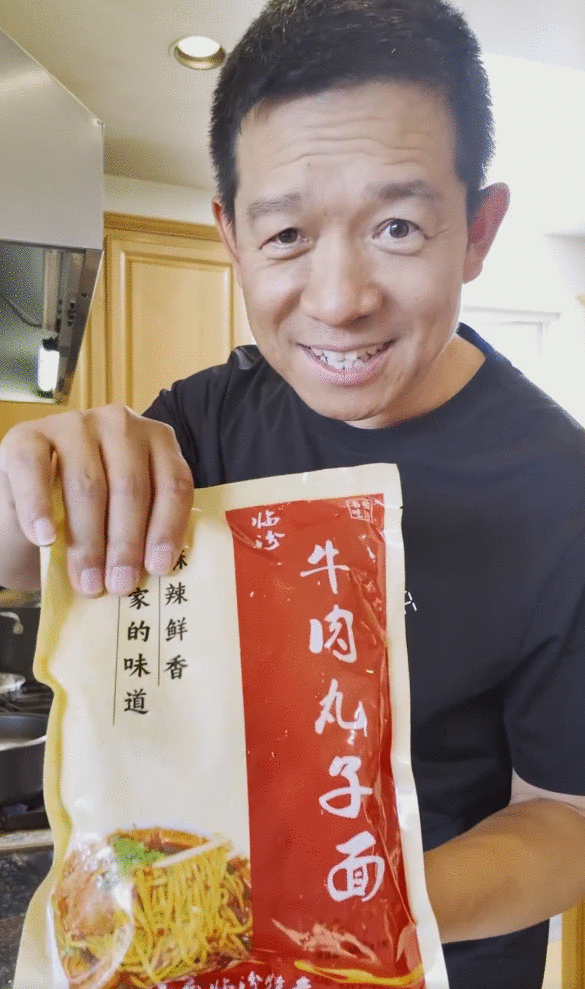 临汾
牛肉丸子面
辣鲜香
家的味道